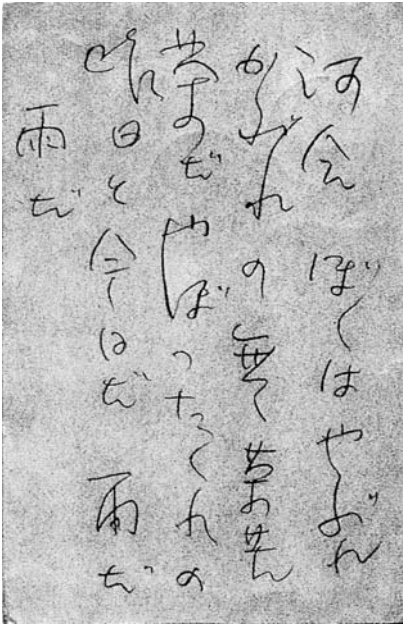 河会 ぼくはやぶれ
かぶれの無茶苦
茶だ やぼったくれの
昨日と今日だ 雨だ
雨だ